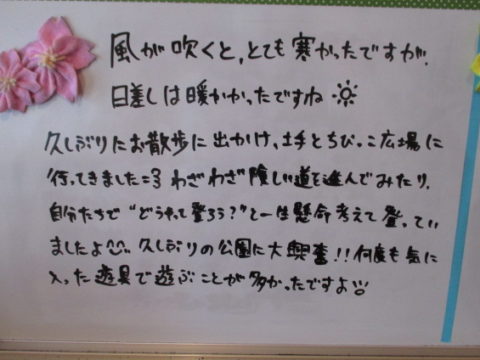 風が吹くと、とても寒かったですが、
日差しは暖かかったですね☀
久しぶりにお散歩に出かけ、土手とちびっこ広場に
行ってきました=3 わざわざ険しい道を選んでみたり、
自分たちで"どうやって登ろう?"と一生懸命考えて登ってい
ましたよ^^ 久しぶりの公園に大興奮!!何度も気に
入った遊具で遊ぶことが多かったですよ